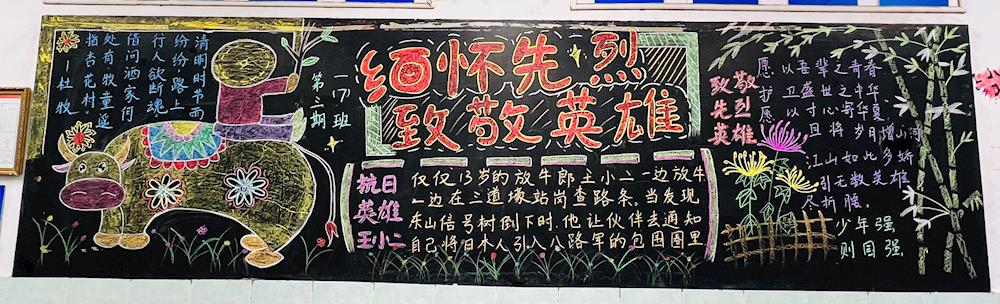 清明时节雨
纷纷路上
行人欲断魂
借问酒家何
处有牧童遥
指杏花村
—杜牧
一(7)班
第三期
缅怀先烈
致敬英雄
抗日
英雄
王小二
仅仅13岁的放牛郎王小二一边放牛
一边在三道壕站岗查路条,当发现
东山信号树倒下时,他让伙伴去通知
自己将日本人引入八路军的包围圈里
致敬
先烈
英雄
愿以吾辈之青春
护卫盛世之中华
愿以寸心寄华夏
且将岁月赠山河
江山如此多娇
引无数英雄
尽折腰。
少年强
则国强